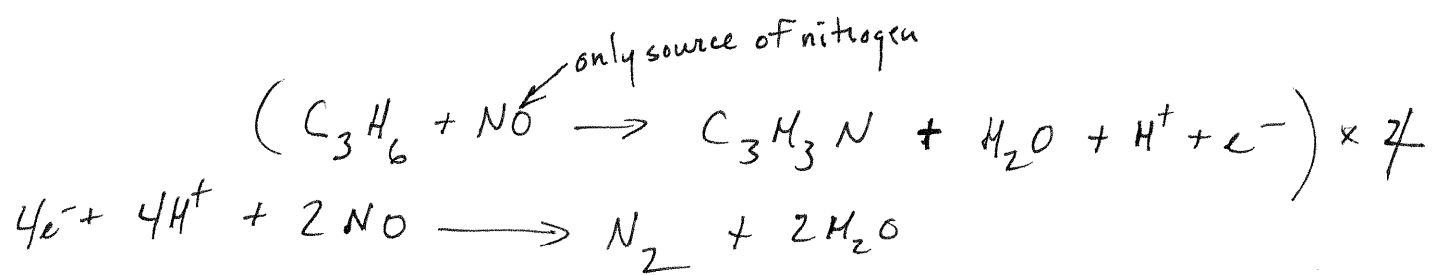 only source of nitrogen
(C₃H₆ + NO → C₃H₃N + H₂O + H⁺ + e⁻) × 4
4e⁻ + 4H⁺ + 2NO → N₂ + 2H₂O